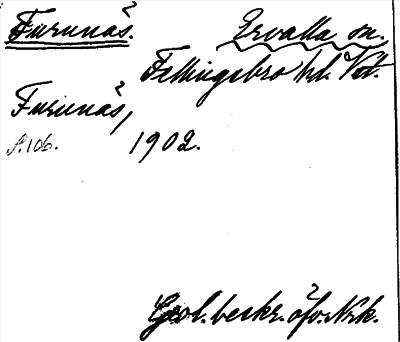 Furunäs. Ervalla sn.
Fellingsbro hd. Vstm.
Furunäs,
s. 106. 1902.
Geol. beskr. öfv. Nrk.